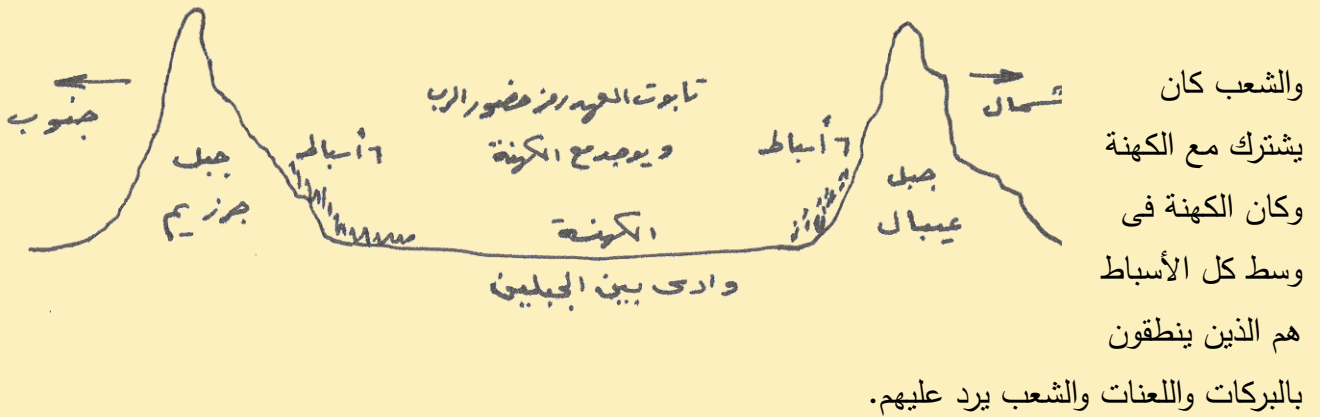 والشعب كان
يشترك مع الكهنة
وكان الكهنة فى
وسط كل الأسباط
هم الذين ينطقون
بالبركات واللعنات والشعب يرد عليهم.
شمال
جبل
عيبال
٦ أسباط
تابوت العهد رمز حضور الرب
ويوجد مع الكهنة
الكهنة
وادى بين الجبلين
٦ أسباط
جبل
جرزيم
جنوب